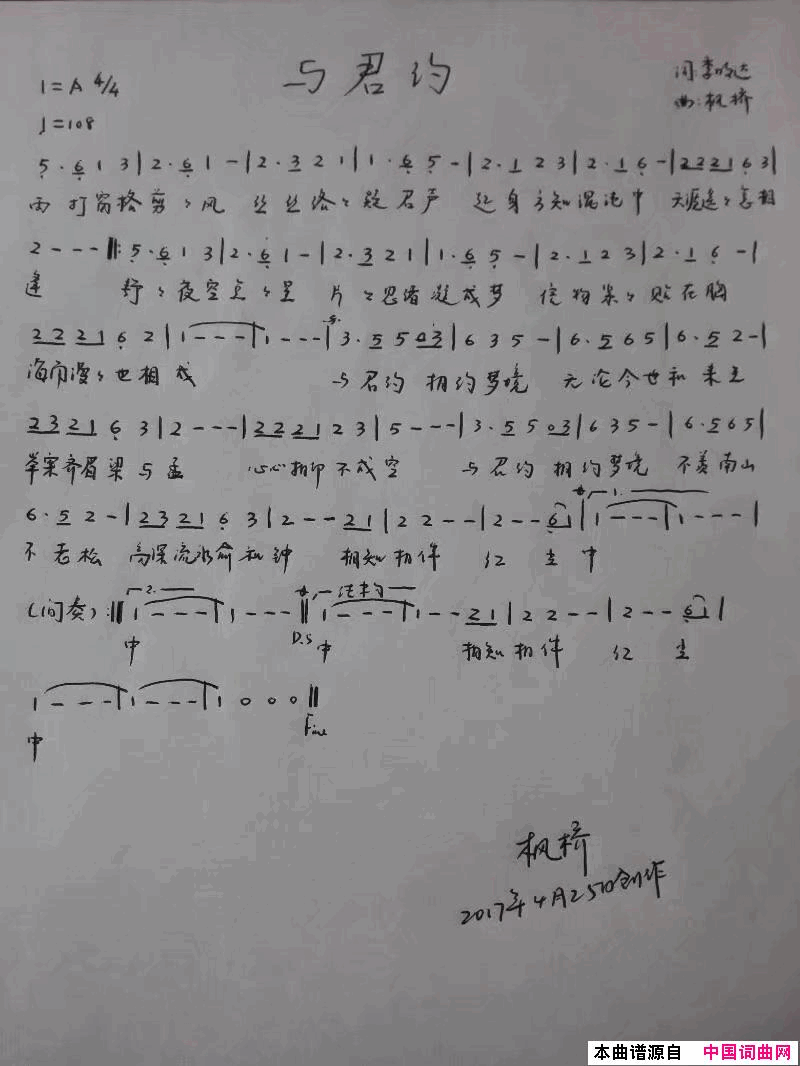 与君约
1=A 4/4
词:李
曲:枫桥
♩=108
5·6 1 3|2·6 1 -|2·3 2 1|1·6 5 -|2·1 2 3|2·1 6 -|2 2 2 1 6 3|
雨打窗格剪々风 丝丝络々疑君声 起身方知混沌中 天涯遥々怎相
2 - - -‖: 5·6 1 3|2·6 1 -|2·3 2 1|1·6 5 -|2·1 2 3|2·1 6 -|
逢 野々夜空点々星 片々思绪凝成梦 信物 々贴在胸
2 2 2 1 6 2|1 - - -|1 - - -|3·5 5 0 3|6 3 5 -|6·5 6 5|6·5 2 -|
海角漫々也相 与君约 相约梦境 无论今世和来生
2 3 2 1 6 3|2 - - -|2 2 2 1 2 3|5 - - -|3·5 5 0 3|6 3 5 -|6·5 6 5|
举案齐眉梁与孟 心心相印不成空 与君约 相约梦境 不羡南山
6·5 2 -|2 3 2 1 6 3|2 - - 2 1|2 2 - -|2 - - 6 1|1 - - -|1 - - -|
不老松 高深流水俞和钟 相知相伴 红 尘 中
(间奏) :‖ 2. 1 - - -|1 - - -‖ 结构 1 - - -|1 - - 2 1|2 2 - -|2 - - 6 1|
中 D.S 中 相知相伴 红 尘
1 - - -|1 - - -|1 0 0 0‖
中 Fine
枫桥
2017年4月25日创作
本曲谱源自 中国词曲网